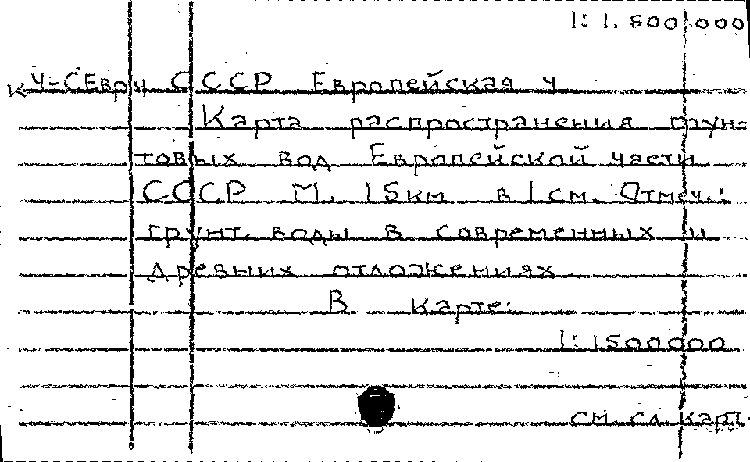 1:1.500.000
К Ч-СЕвр ч СССР Европейская ч
Карта распространения грун-
товых вод Европейской части
СССР М. 15км в 1см. Отмеч.:
грунт. воды в современных и
древних отложениях
В карте:
1:1500000
см. сл. карт.